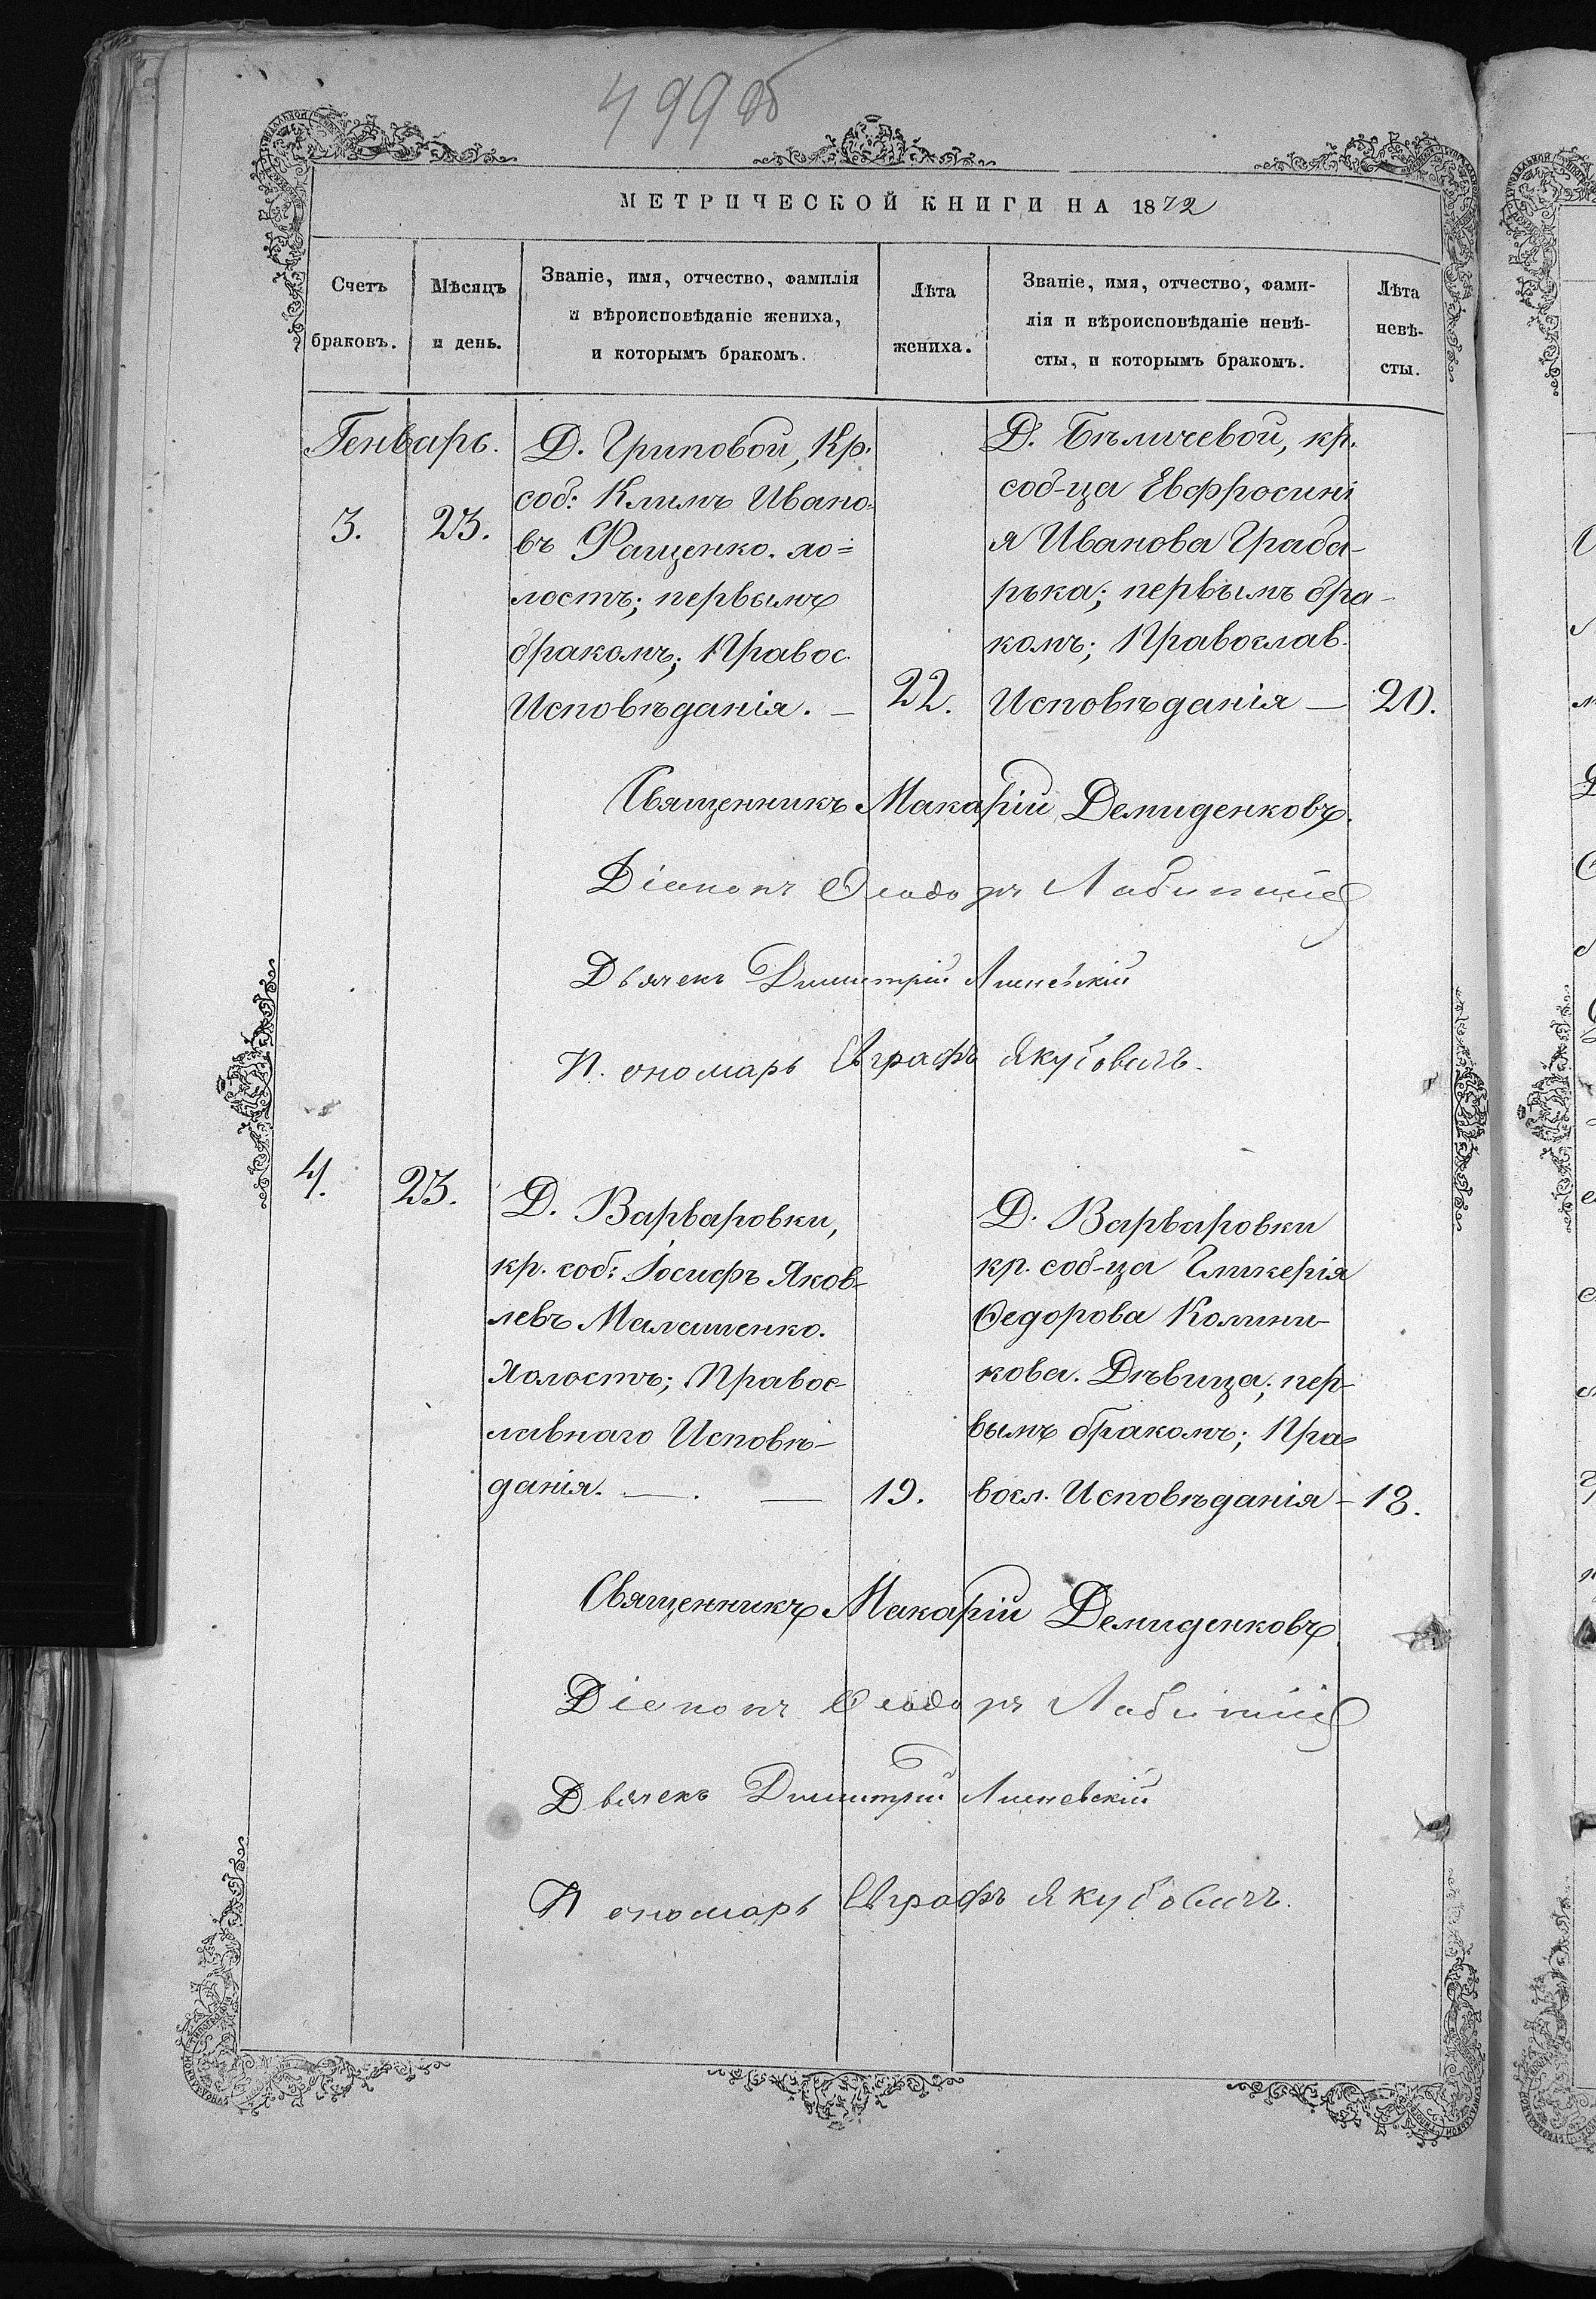 499 об
МЕТРИЧЕСКОЙ КНИГИ НА 1872
Счетъ браковъ.
Мѣсяцъ и день.
Званіе, имя, отчество, фамилія
и вѣроисповѣданіе жениха,
и которымъ бракомъ.
Лѣта жениха.
Званіе, имя, отчество, фами-
лія и вѣроисповѣданіе невѣ-
сты, и которымъ бракомъ.
Лѣта
невѣ-
сты.
Генварь.
3.
23.
Д. Гриповой, Кр.
соб: Климъ Ивано-
въ Фащенко. хо=
лостъ; первымъ
бракомъ; Правос.
Исповѣданія. —
22.
Д. Бѣличевой, кр.
соб-ца Евфросині
я Иванова Граба-
рька; первымъ бра-
комъ; Православ.
Исповѣданія —
20.
Священникъ Макарій Демиденковъ.
Діаконъ Ѳеодоръ
Дьячекъ Димитрій Лисневскій
Пономарь Евграфъ Якубовичъ.
4.
23.
Д. Варваровки,
кр. соб: Іосифъ Яков-
левъ Малашенко.
Холостъ; Правос-
лавнаго Исповѣ-
данія. — . —
19.
Д. Варваровки
кр. соб-ца Гликерія
Ѳедорова Колини-
кова. Дѣвица; пер-
вымъ бракомъ; Пра=
восл. Исповѣданія —
18.
Священникъ Макарій Демиденковъ
Діаконъ Ѳеодоръ
Дьячекъ Димитрій Лисневскій
Пономарь Евграфъ Якубовичъ.